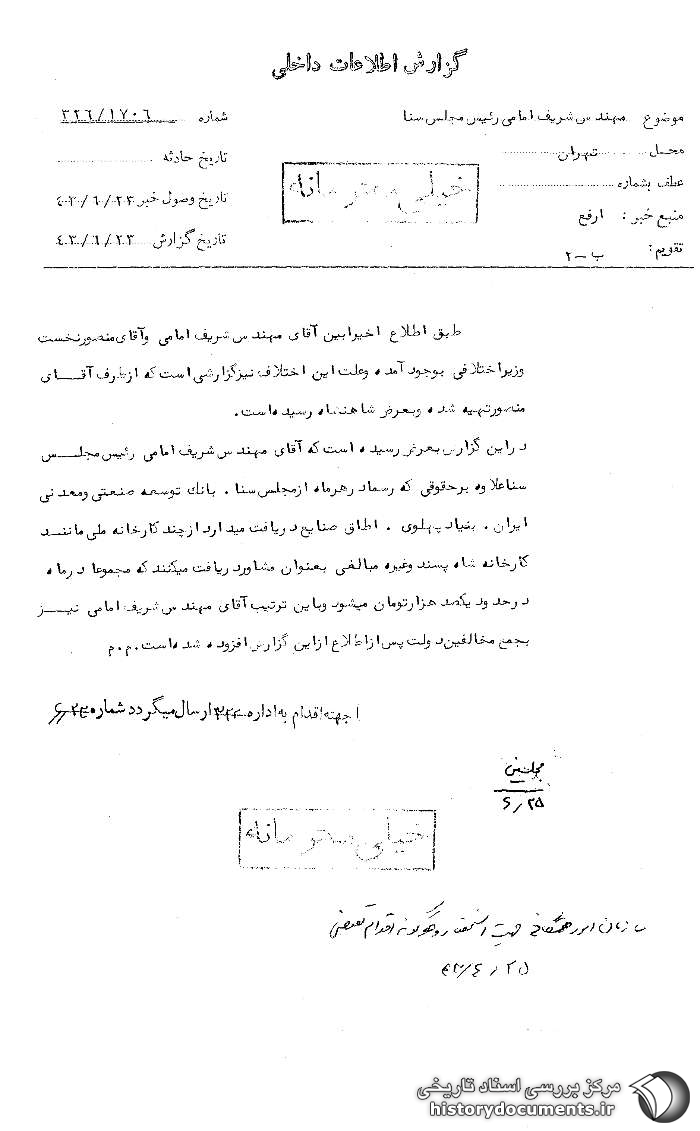 گزارش اطلاعات داخلی
موضوع مهندس شریف امامی رئیس مجلس سنا
شماره ۳۲۶/۱۷۰۶
محل تهران
تاریخ حادثه
عطف بشماره
خیلی محرمانه
تاریخ وصول خبر
منبع خبر: ارفع
تاریخ گزارش
تقویم: ب-۲
طبق اطلاع اخیرابین آقای مهندس شریف امامی وآقای منصورنخست
وزیراختلافی بوجود آمده وعلت این اختلاف نیزگزارشی است که ازطرف آقای
منصورتهیه شده وبعرض شاهنشاه رسیده است.
دراین گزارش بعرض رسیده است که آقای مهندس شریف امامی رئیس مجلس
سناعلاوه برحقوقی که رسما درهرماه ازمجلس سنا. بانک توسعه صنعتی ومعدنی
ایران. بنیاد پهلوی. اطاق صنایع دریافت میدارد ازچند کارخانه ملی مانند
کارخانه شاه پسند وغیره مبالغی بعنوان مشاوردریافت میکنند که مجموعا درماه
درحدود یکصد هزارتومان میشود وباین ترتیب آقای مهندس شریف امامی نیز
بجمع مخالفین دولت پس ازاطلاع ازاین گزارش افزوده شده است.م.م
جهته اقدام به اداره ارسال میگردد شماره
مجلسین
۶/۲۵
خیلی محرمانه
جهت اقدام
مرکز بررسی اسناد تاریخی
historydocuments.ir